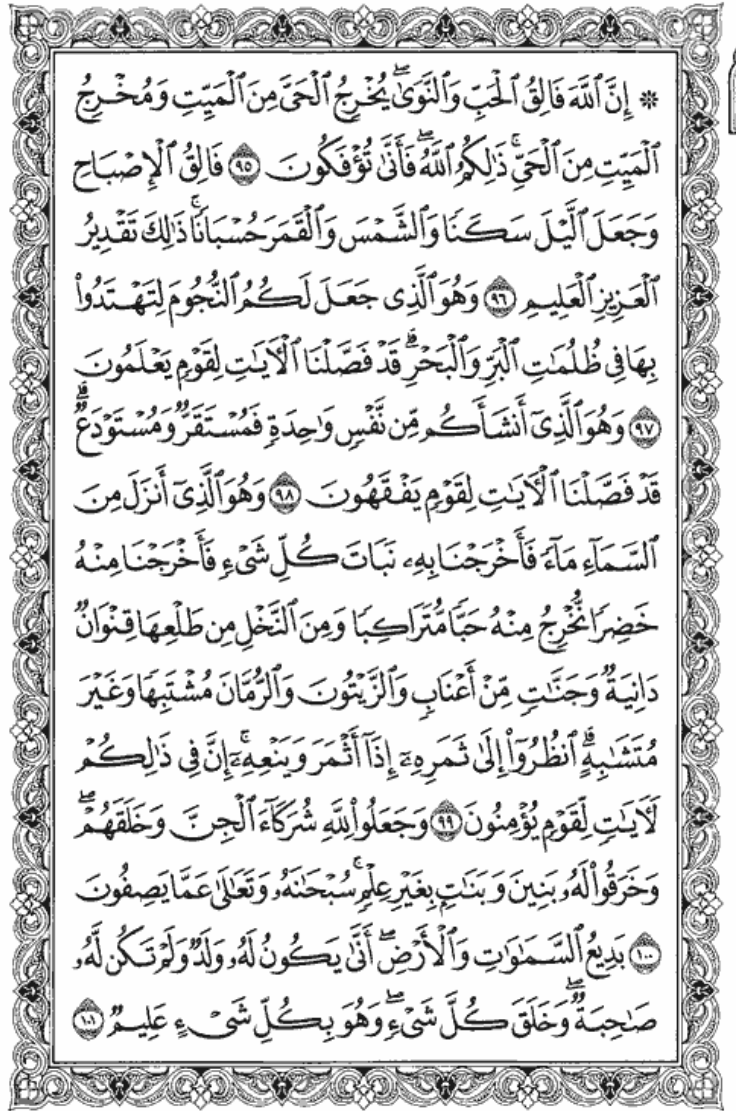 ۞ إِنَّ ٱللَّهَ فَالِقُ ٱلْحَبِّ وَٱلنَّوَىٰۖ يُخْرِجُ ٱلْحَىَّ مِنَ ٱلْمَيِّتِ وَمُخْرِجُ
ٱلْمَيِّتِ مِنَ ٱلْحَىِّۚ ذَٰلِكُمُ ٱللَّهُۖ فَأَنَّىٰ تُؤْفَكُونَ ۝٩٥ فَالِقُ ٱلْإِصْبَاحِ
وَجَعَلَ ٱلَّيْلَ سَكَنًا وَٱلشَّمْسَ وَٱلْقَمَرَ حُسْبَانًاۚ ذَٰلِكَ تَقْدِيرُ
ٱلْعَزِيزِ ٱلْعَلِيمِ ۝٩٦ وَهُوَ ٱلَّذِى جَعَلَ لَكُمُ ٱلنُّجُومَ لِتَهْتَدُوا۟
بِهَا فِى ظُلُمَٰتِ ٱلْبَرِّ وَٱلْبَحْرِۗ قَدْ فَصَّلْنَا ٱلْءَايَٰتِ لِقَوْمٍ يَعْلَمُونَ
۝٩٧ وَهُوَ ٱلَّذِىٓ أَنشَأَكُم مِّن نَّفْسٍ وَٰحِدَةٍ فَمُسْتَقَرٌّ وَمُسْتَوْدَعٌۗ
قَدْ فَصَّلْنَا ٱلْءَايَٰتِ لِقَوْمٍ يَفْقَهُونَ ۝٩٨ وَهُوَ ٱلَّذِىٓ أَنزَلَ مِنَ
ٱلسَّمَآءِ مَآءً فَأَخْرَجْنَا بِهِۦ نَبَاتَ كُلِّ شَىْءٍ فَأَخْرَجْنَا مِنْهُ
خَضِرًا نُّخْرِجُ مِنْهُ حَبًّا مُّتَرَاكِبًا وَمِنَ ٱلنَّخْلِ مِن طَلْعِهَا قِنْوَانٌ
دَانِيَةٌ وَجَنَّٰتٍ مِّنْ أَعْنَابٍ وَٱلزَّيْتُونَ وَٱلرُّمَّانَ مُشْتَبِهًا وَغَيْرَ
مُتَشَٰبِهٍۗ ٱنظُرُوٓا۟ إِلَىٰ ثَمَرِهِۦٓ إِذَآ أَثْمَرَ وَيَنْعِهِۦٓۚ إِنَّ فِى ذَٰلِكُمْ
لَءَايَٰتٍ لِّقَوْمٍ يُؤْمِنُونَ ۝٩٩ وَجَعَلُوا۟ لِلَّهِ شُرَكَآءَ ٱلْجِنَّ وَخَلَقَهُمْۖ
وَخَرَقُوا۟ لَهُۥ بَنِينَ وَبَنَٰتٍۭ بِغَيْرِ عِلْمٍۚ سُبْحَٰنَهُۥ وَتَعَٰلَىٰ عَمَّا يَصِفُونَ
۝١٠٠ بَدِيعُ ٱلسَّمَٰوَٰتِ وَٱلْأَرْضِۖ أَنَّىٰ يَكُونُ لَهُۥ وَلَدٌ وَلَمْ تَكُن لَّهُۥ
صَٰحِبَةٌۖ وَخَلَقَ كُلَّ شَىْءٍۖ وَهُوَ بِكُلِّ شَىْءٍ عَلِيمٌ ۝١٠١